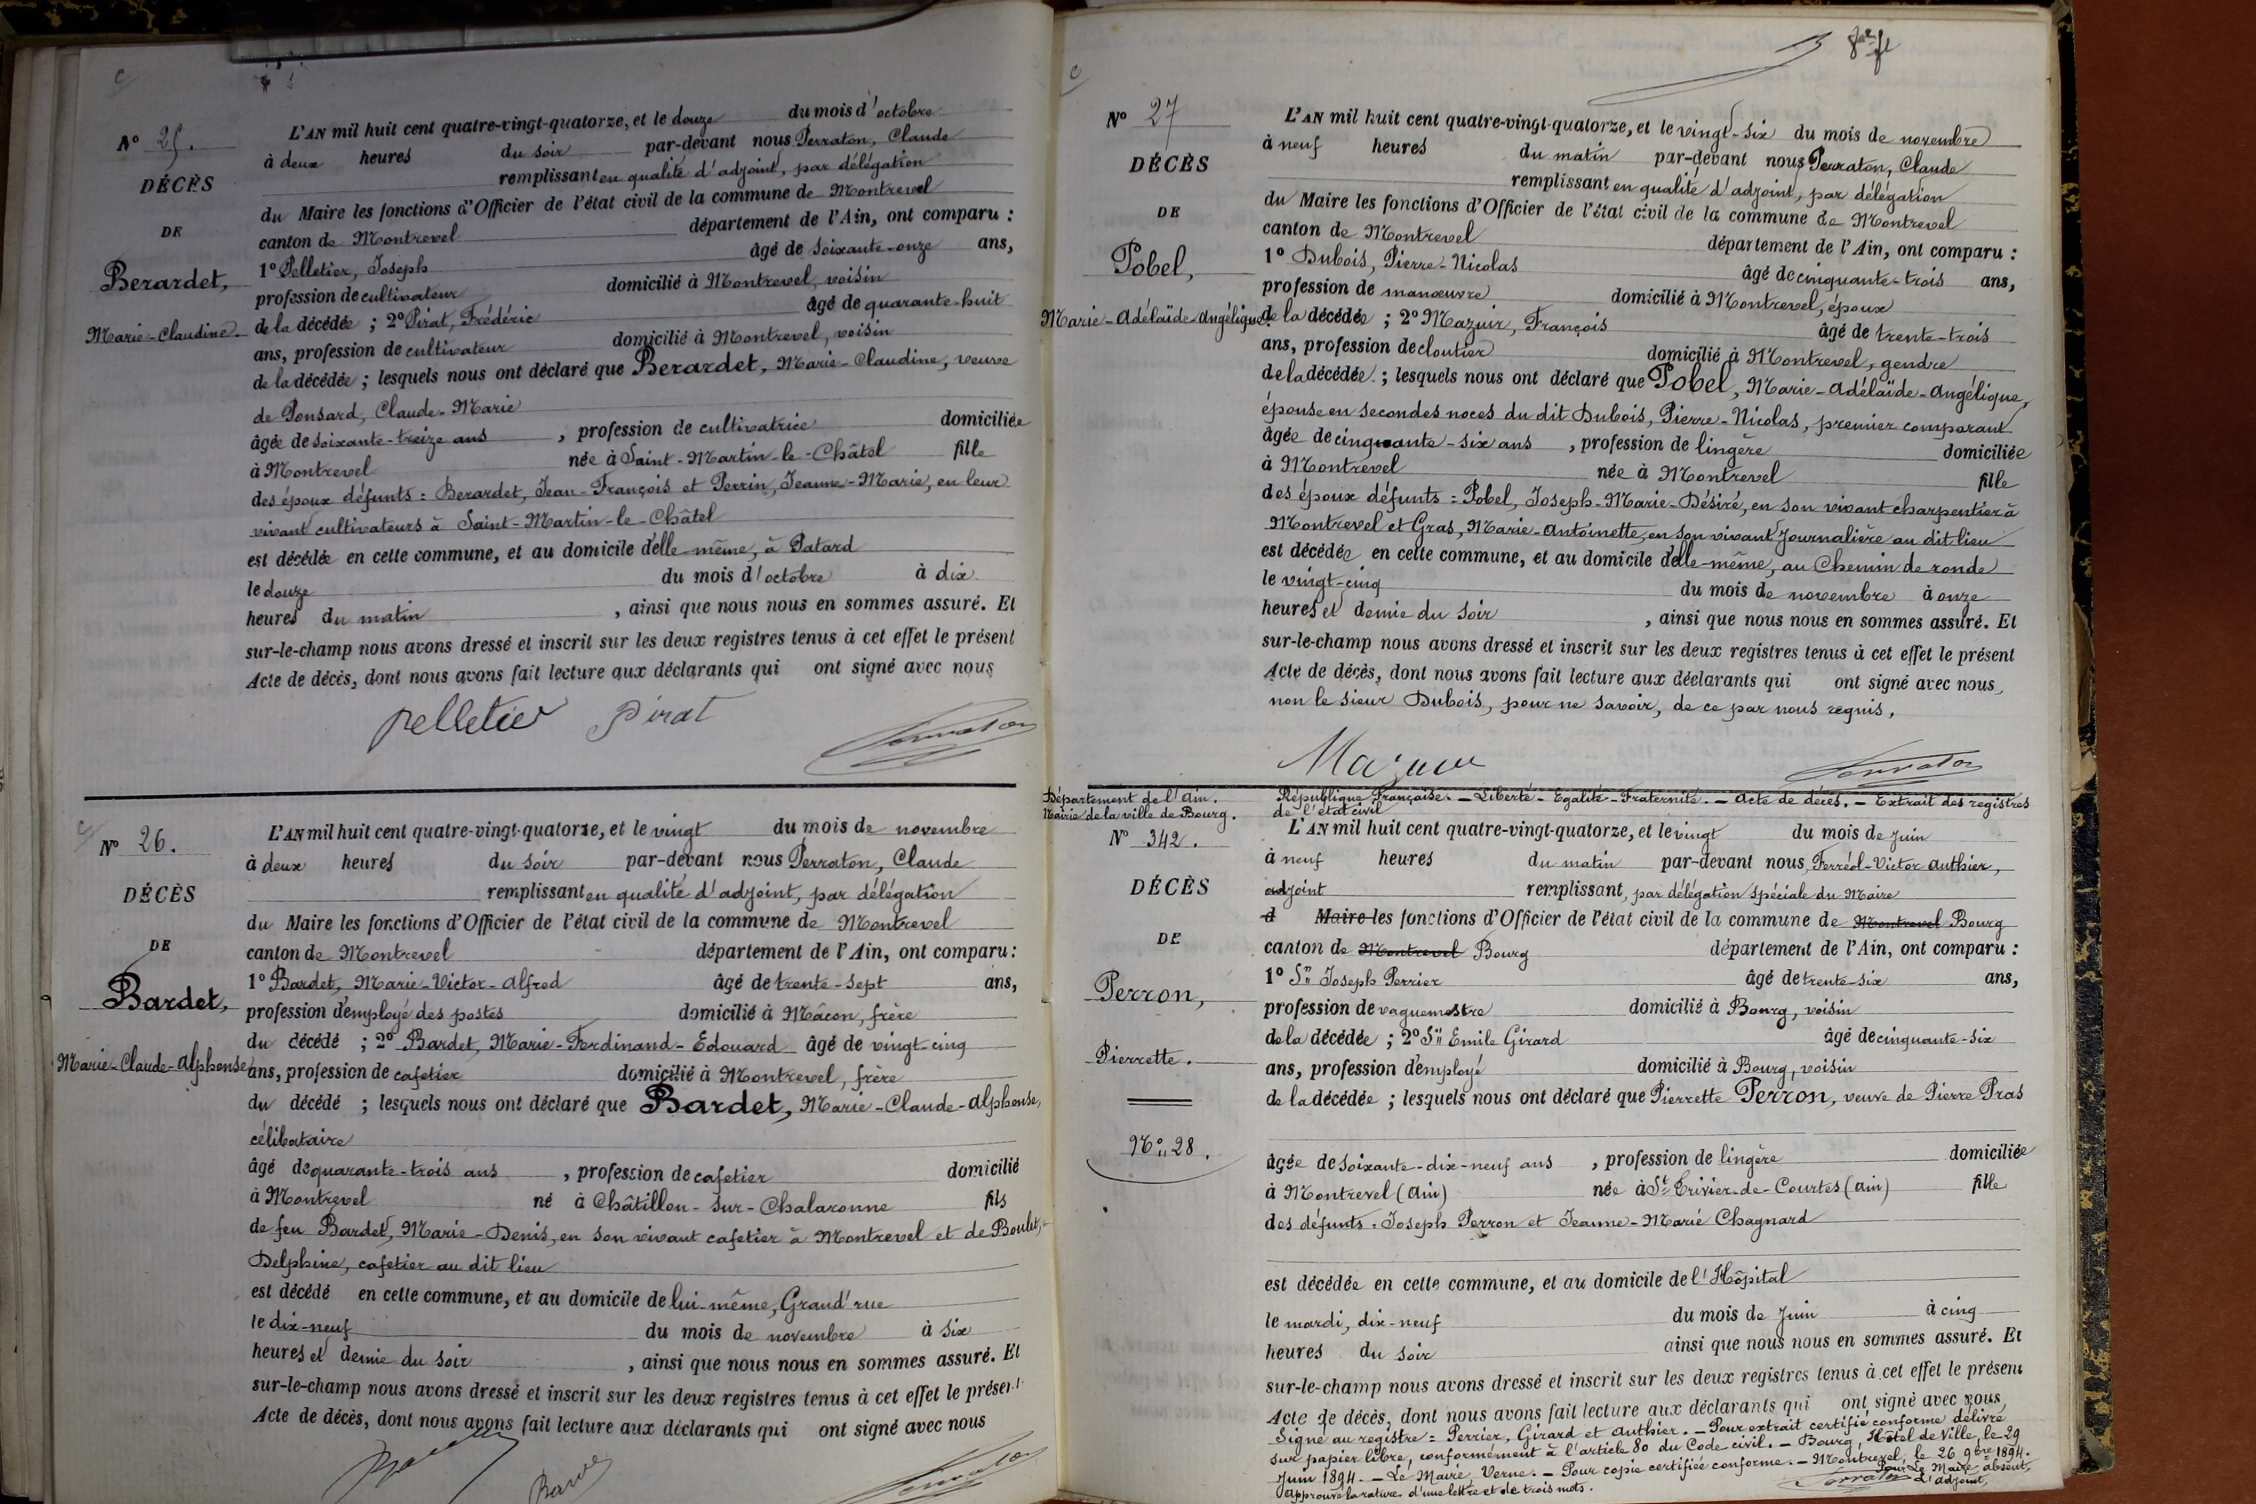 Nº 25.
DÉCÈS
DE
Berardet,
Marie-Claudine.
L'AN mil huit cent quatre-vingt-quatorze, et le douze du mois d'octobre
à deux heures du soir par-devant nous Perraton, Claude
remplissant en qualité d'adjoint, par délégation
du Maire les fonctions d'Officier de l'état civil de la commune de Montrevel
canton de Montrevel département de l'Ain, ont comparu :
1º Pelletier, Joseph âgé de soixante-onze ans,
profession de cultivateur domicilié à Montrevel, voisin
de la décédée ; 2º Pirat, Frédéric âgé de quarante-huit
ans, profession de cultivateur domicilié à Montrevel, voisin
de la décédée ; lesquels nous ont déclaré que Berardet, Marie-Claudine, veuve
de Ponsard, Claude-Marie
âgée de soixante-treize ans , profession de cultivatrice domiciliée
à Montrevel née à Saint-Martin-le-Châtel fille
des époux défunts : Berardet, Jean-François et Perrin, Jeanne-Marie, en leur
vivant cultivateurs à Saint-Martin-le-Châtel
est décédée en cette commune, et au domicile d'elle-même, à Patard
le douze du mois d'octobre à dix
heures du matin , ainsi que nous nous en sommes assuré. Et
sur-le-champ nous avons dressé et inscrit sur les deux registres tenus à cet effet le présent
Acte de décès, dont nous avons fait lecture aux déclarants qui ont signé avec nous
Pelletier Pirat Perraton
Nº 26.
DÉCÈS
DE
Bardet,
Marie-Claude-Alphonse
L'AN mil huit cent quatre-vingt-quatorze, et le vingt du mois de novembre
à deux heures du soir par-devant nous Perraton, Claude
remplissant en qualité d'adjoint, par délégation
du Maire les fonctions d'Officier de l'état civil de la commune de Montrevel
canton de Montrevel département de l'Ain, ont comparu :
1º Bardet, Marie-Victor-Alfred âgé de trente-sept ans,
profession d'employé des postes domicilié à Mâcon, frère
du décédé ; 2º Bardet, Marie-Ferdinand-Edouard âgé de vingt-cinq
ans, profession de cafetier domicilié à Montrevel, frère
du décédé ; lesquels nous ont déclaré que Bardet, Marie-Claude-Alphonse,
célibataire
âgé de quarante-trois ans , profession de cafetier domicilié
à Montrevel né à Châtillon-sur-Chalaronne fils
de feu Bardet, Marie-Denis, en son vivant cafetier à Montrevel et de Boulet,
Delphine, cafetier au dit lieu
est décédé en cette commune, et au domicile de lui-même, Grand'rue
le dix-neuf du mois de novembre à six
heures et demie du soir , ainsi que nous nous en sommes assuré. Et
sur-le-champ nous avons dressé et inscrit sur les deux registres tenus à cet effet le présent
Acte de décès, dont nous avons fait lecture aux déclarants qui ont signé avec nous
Perraton
Nº 27
DÉCÈS
DE
Pobel,
Marie-Adélaïde-Angélique.
L'AN mil huit cent quatre-vingt-quatorze, et le vingt-six du mois de novembre
à neuf heures du matin par-devant nous Perraton, Claude
remplissant en qualité d'adjoint, par délégation
du Maire les fonctions d'Officier de l'état civil de la commune de Montrevel
canton de Montrevel département de l'Ain, ont comparu :
1º Dubois, Pierre-Nicolas âgé de cinquante-trois ans,
profession de manœuvre domicilié à Montrevel, époux
de la décédée ; 2º Mazuir, François âgé de trente-trois
ans, profession de cloutier domicilié à Montrevel, gendre
de la décédée ; lesquels nous ont déclaré que Pobel, Marie-Adélaïde-Angélique,
épouse en secondes noces du dit Dubois, Pierre-Nicolas, premier comparant
âgée de cinquante-six ans , profession de lingère domiciliée
à Montrevel née à Montrevel fille
des époux défunts : Pobel, Joseph-Marie-Désiré, en son vivant charpentier à
Montrevel et Gras, Marie-Antoinette, en son vivant Journalière au dit lieu
est décédée en cette commune, et au domicile d'elle-même, au Chemin de ronde
le vingt-cinq du mois de novembre à onze
heures et demie du soir , ainsi que nous nous en sommes assuré. Et
sur-le-champ nous avons dressé et inscrit sur les deux registres tenus à cet effet le présent
Acte de décès, dont nous avons fait lecture aux déclarants qui ont signé avec nous,
non le sieur Dubois, pour ne savoir, de ce par nous requis.
Mazuir Perraton
Département de l'Ain.
Mairie de la ville de Bourg.
Nº 342.
DÉCÈS
DE
Perron,
Pierrette.
Nº 28.
République Française. — Liberté - Egalité - Fraternité. — Acte de décès. — Extrait des registres
de l'état civil
L'AN mil huit cent quatre-vingt-quatorze, et le vingt du mois de Juin
à neuf heures du matin par-devant nous, Ferréol-Victor Authier,
adjoint remplissant, par délégation spéciale du Maire
d Maire les fonctions d'Officier de l'état civil de la commune de Montrevel Bourg
canton de Montrevel Bourg département de l'Ain, ont comparu :
1º Sr Joseph Perrier âgé de trente-six ans,
profession de vaguemestre domicilié à Bourg, voisin
de la décédée ; 2º Sr Emile Girard âgé de cinquante-six
ans, profession d'employé domicilié à Bourg, voisin
de la décédée ; lesquels nous ont déclaré que Pierrette Perron, veuve de Pierre Pras
âgée de soixante-dix-neuf ans , profession de lingère domiciliée
à Montrevel (Ain) née à St Trivier-de-Courtes (Ain) fille
des défunts : Joseph Perron et Jeanne-Marie Chagnard
est décédée en cette commune, et au domicile de l'Hôpital
le mardi, dix-neuf du mois de Juin à cinq
heures du soir ainsi que nous nous en sommes assuré. Et
sur-le-champ nous avons dressé et inscrit sur les deux registres tenus à cet effet le présent
Acte de décès, dont nous avons fait lecture aux déclarants qui ont signé avec nous
Signé au registre : Perrier, Girard et Authier. — Pour extrait certifié conforme délivré
sur papier libre, conformément à l'article 80 du Code civil. — Bourg, Hôtel de Ville, le 29
Juin 1894. — Le Maire, Verne. — Pour copie certifiée conforme. — Montrevel, le 26 9bre 1894.
Pour Le Maire absent,
Approuvé la rature d'une lettre et de trois mots. Perraton L'adjoint,